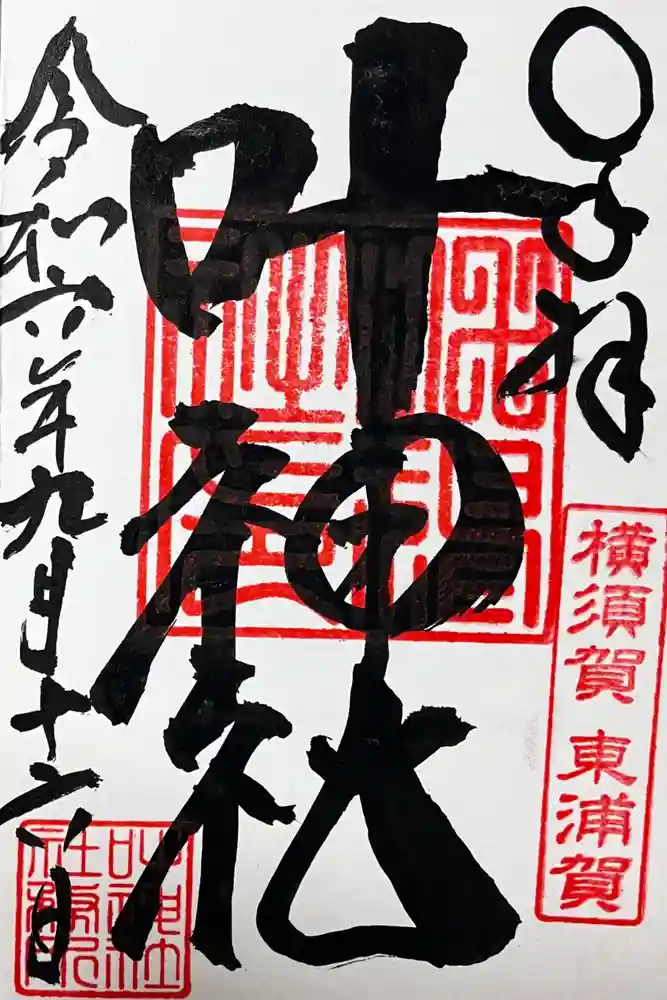 奉拝
横須賀 東浦賀
叶神社
令和六年九月十六日
叶神社
社務所